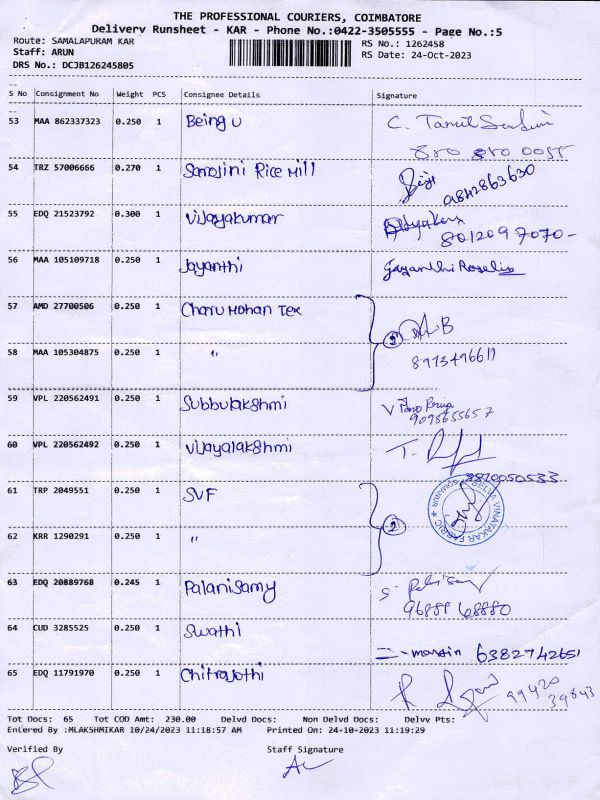 THE PROFESSIONAL COURIERS, COIMBATORE
Delivery Runsheet - KAR - Phone No.:0422-3505555 - Page No.:5
Route: SAMALAPURAM KAR RS No.: 1262458
Staff: ARUN RS Date: 24-Oct-2023
DRS No.: DCJB126245805
S No Consignment No Weight PCS Consignee Details Signature
53 MAA 862337323 0.250 1 Being U C.
54 TRZ 57006666 0.270 1 Sarojini Rice Mill 9842863630
55 EDQ 21523792 0.300 1 Vijayakumar 8012097070-
56 MAA 105109718 0.250 1 Jayanthi Jayanthi
57 AMD 27700506 0.250 1 Charu Mohan Tex
58 MAA 105304875 0.250 1 "
59 VPL 220562491 0.250 1 Subbulakshmi
9098655657
60 VPL 220562492 0.250 1 Vijayalakshmi T.
61 TRP 2049551 0.250 1 SVF 2
SELVA VINAYAKAR FABRIC ★ SOMANUR ★
62 KRR 1290291 0.250 1 "
63 EDQ 20889768 0.245 1 Palanisamy S.
64 CUD 3285525 0.250 1 Swathi 6382742651
65 EDQ 11791970 0.250 1 Chitrajothi 99420
39843
Tot Docs: 65 Tot COD Amt: 230.00 Delvd Docs: Non Delvd Docs: Delvv Pts:
Entered By :MLAKSHMIKAR 10/24/2023 11:18:57 AM Printed On: 24-10-2023 11:19:29
Verified By Staff Signature